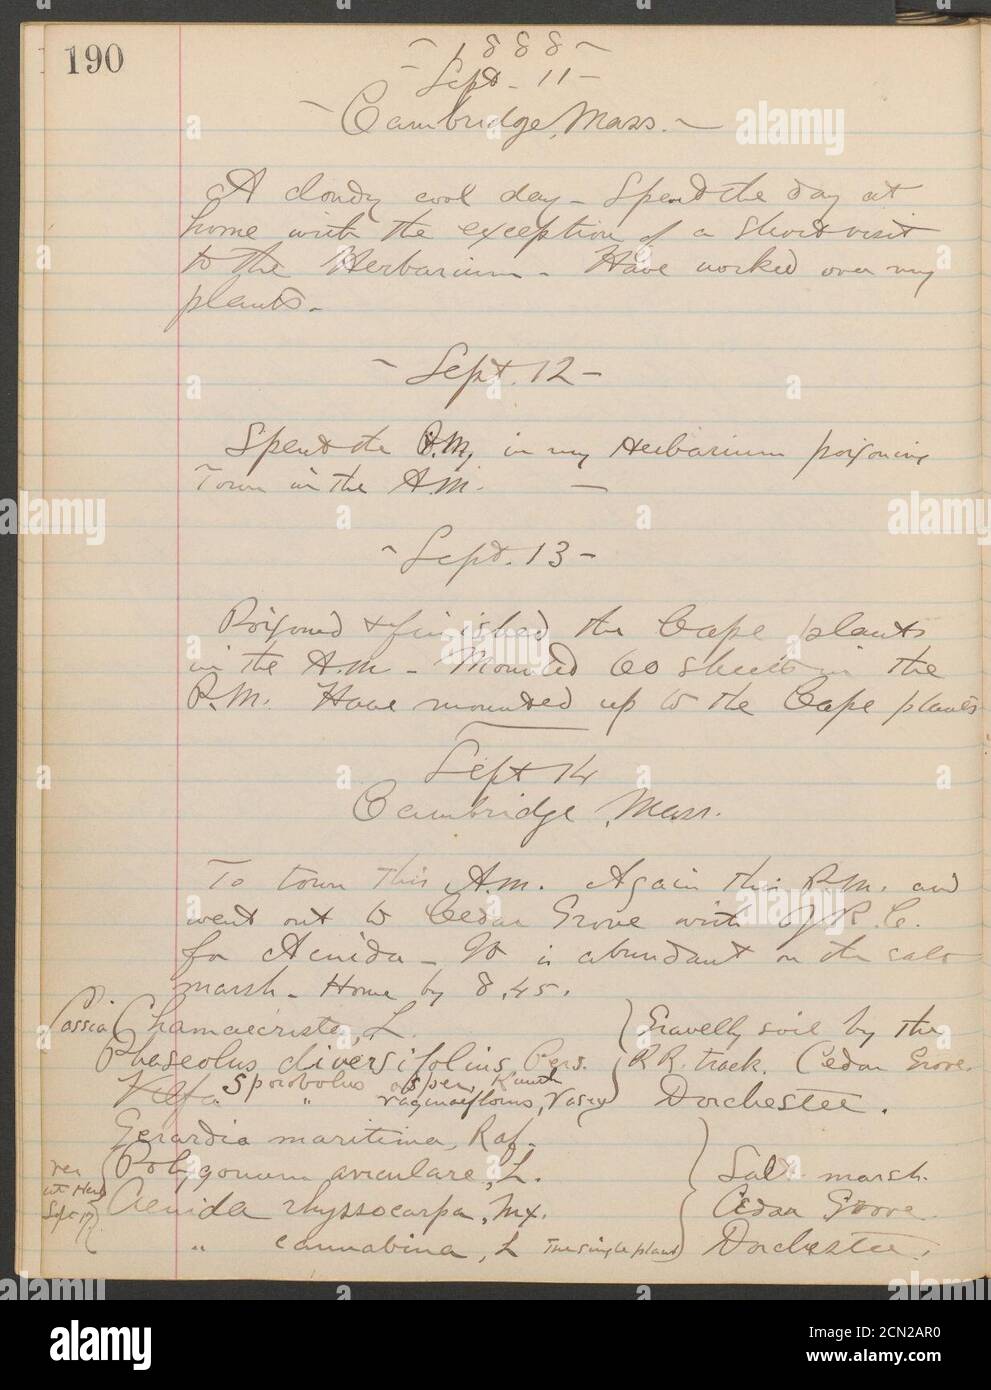 190
- 1888 -
- Sept. 11 -
- Cambridge, Mass. -
A cloudy cool day - Spent the day at
home with the exception of a short visit
to the Herbarium - Have worked over my
plants.
- Sept. 12 -
Spent the P.M. in my Herbarium poisoning
Town in the A.M. -
- Sept. 13 -
Poisoned & finished the Cape plants
in the A.M. - Mounted 60 sheets in the
P.M. Have mounted up to the Cape plants
Sept 14
Cambridge, Mass.
To town this A.M. Again this P.M. and
went out to Cedar Grove with J.R.C.
for Acnida - It is abundant on the salt
marsh - Home by 8.45.
Cassia Chamaecrista, L. } Gravelly soil by the
Phaseolus diversifolius, Pers. } R R. track. Cedar Grove.
Vilfa Sporobolus asper, Kunth } Dorchester.
" vaginaeflorus, Vasey
Gerardia maritima, Raf.
Polygonum aviculare, L. } Salt marsh.
ver at Herb Sept 17 { Acnida rhyssocarpa, Mx. } Cedar Grove
" cannabina, L The single plant } Dorchester.
alamy
alamy
alamy
www.alamy.com
Image ID: 2CN2AR0